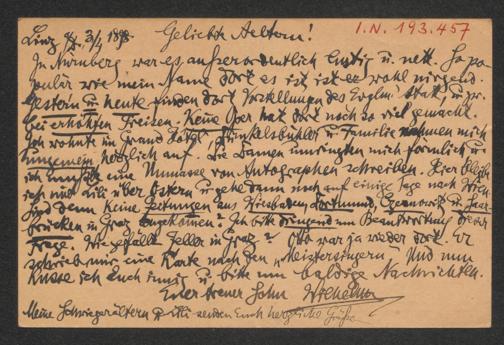 Linz 3/4 1898. Geliebte Aeltern! I.N. 193.457
In Nürnberg war es außerordentlich lustig u. nett. So po-
pulär wie mein Name dort es ist, ist er wohl nirgend.
Gestern u. heute finden dort Vorstellungen des Evglm. statt, u. zw.
bei erhöhten Preisen. Keine Oper hat dort noch so viel gemacht.
Ich wohnte im Grand Hotel. Dünkelsbühler u. Familie nahmen mich
ungemein herzlich auf. Die Damen umringten mich förmlich u.
ich mußte eine Unmasse von Autographen schreiben. Hier bleib
ich mit Lili über Ostern u. gehe dann noch auf einige Tage nach Wien
Sind denn keine Zeitungen aus Wiesbaden, Dortmund, Chemnitz u. Saar-
brücken in Graz angekommen? Ich bitte dringend um Beantwortung dieser
Frage. Wie gefällt Zeller in Graz? Otto war ja wieder dort. Er
schrieb mir eine Karte nach den "Meistersingern". Und nun
küsse ich Euch innig u. bitte um baldige Nachrichten.
Euer treuer Sohn Wilhelm
Meine Schwiegerältern & Lili senden Euch herzliche Grüße